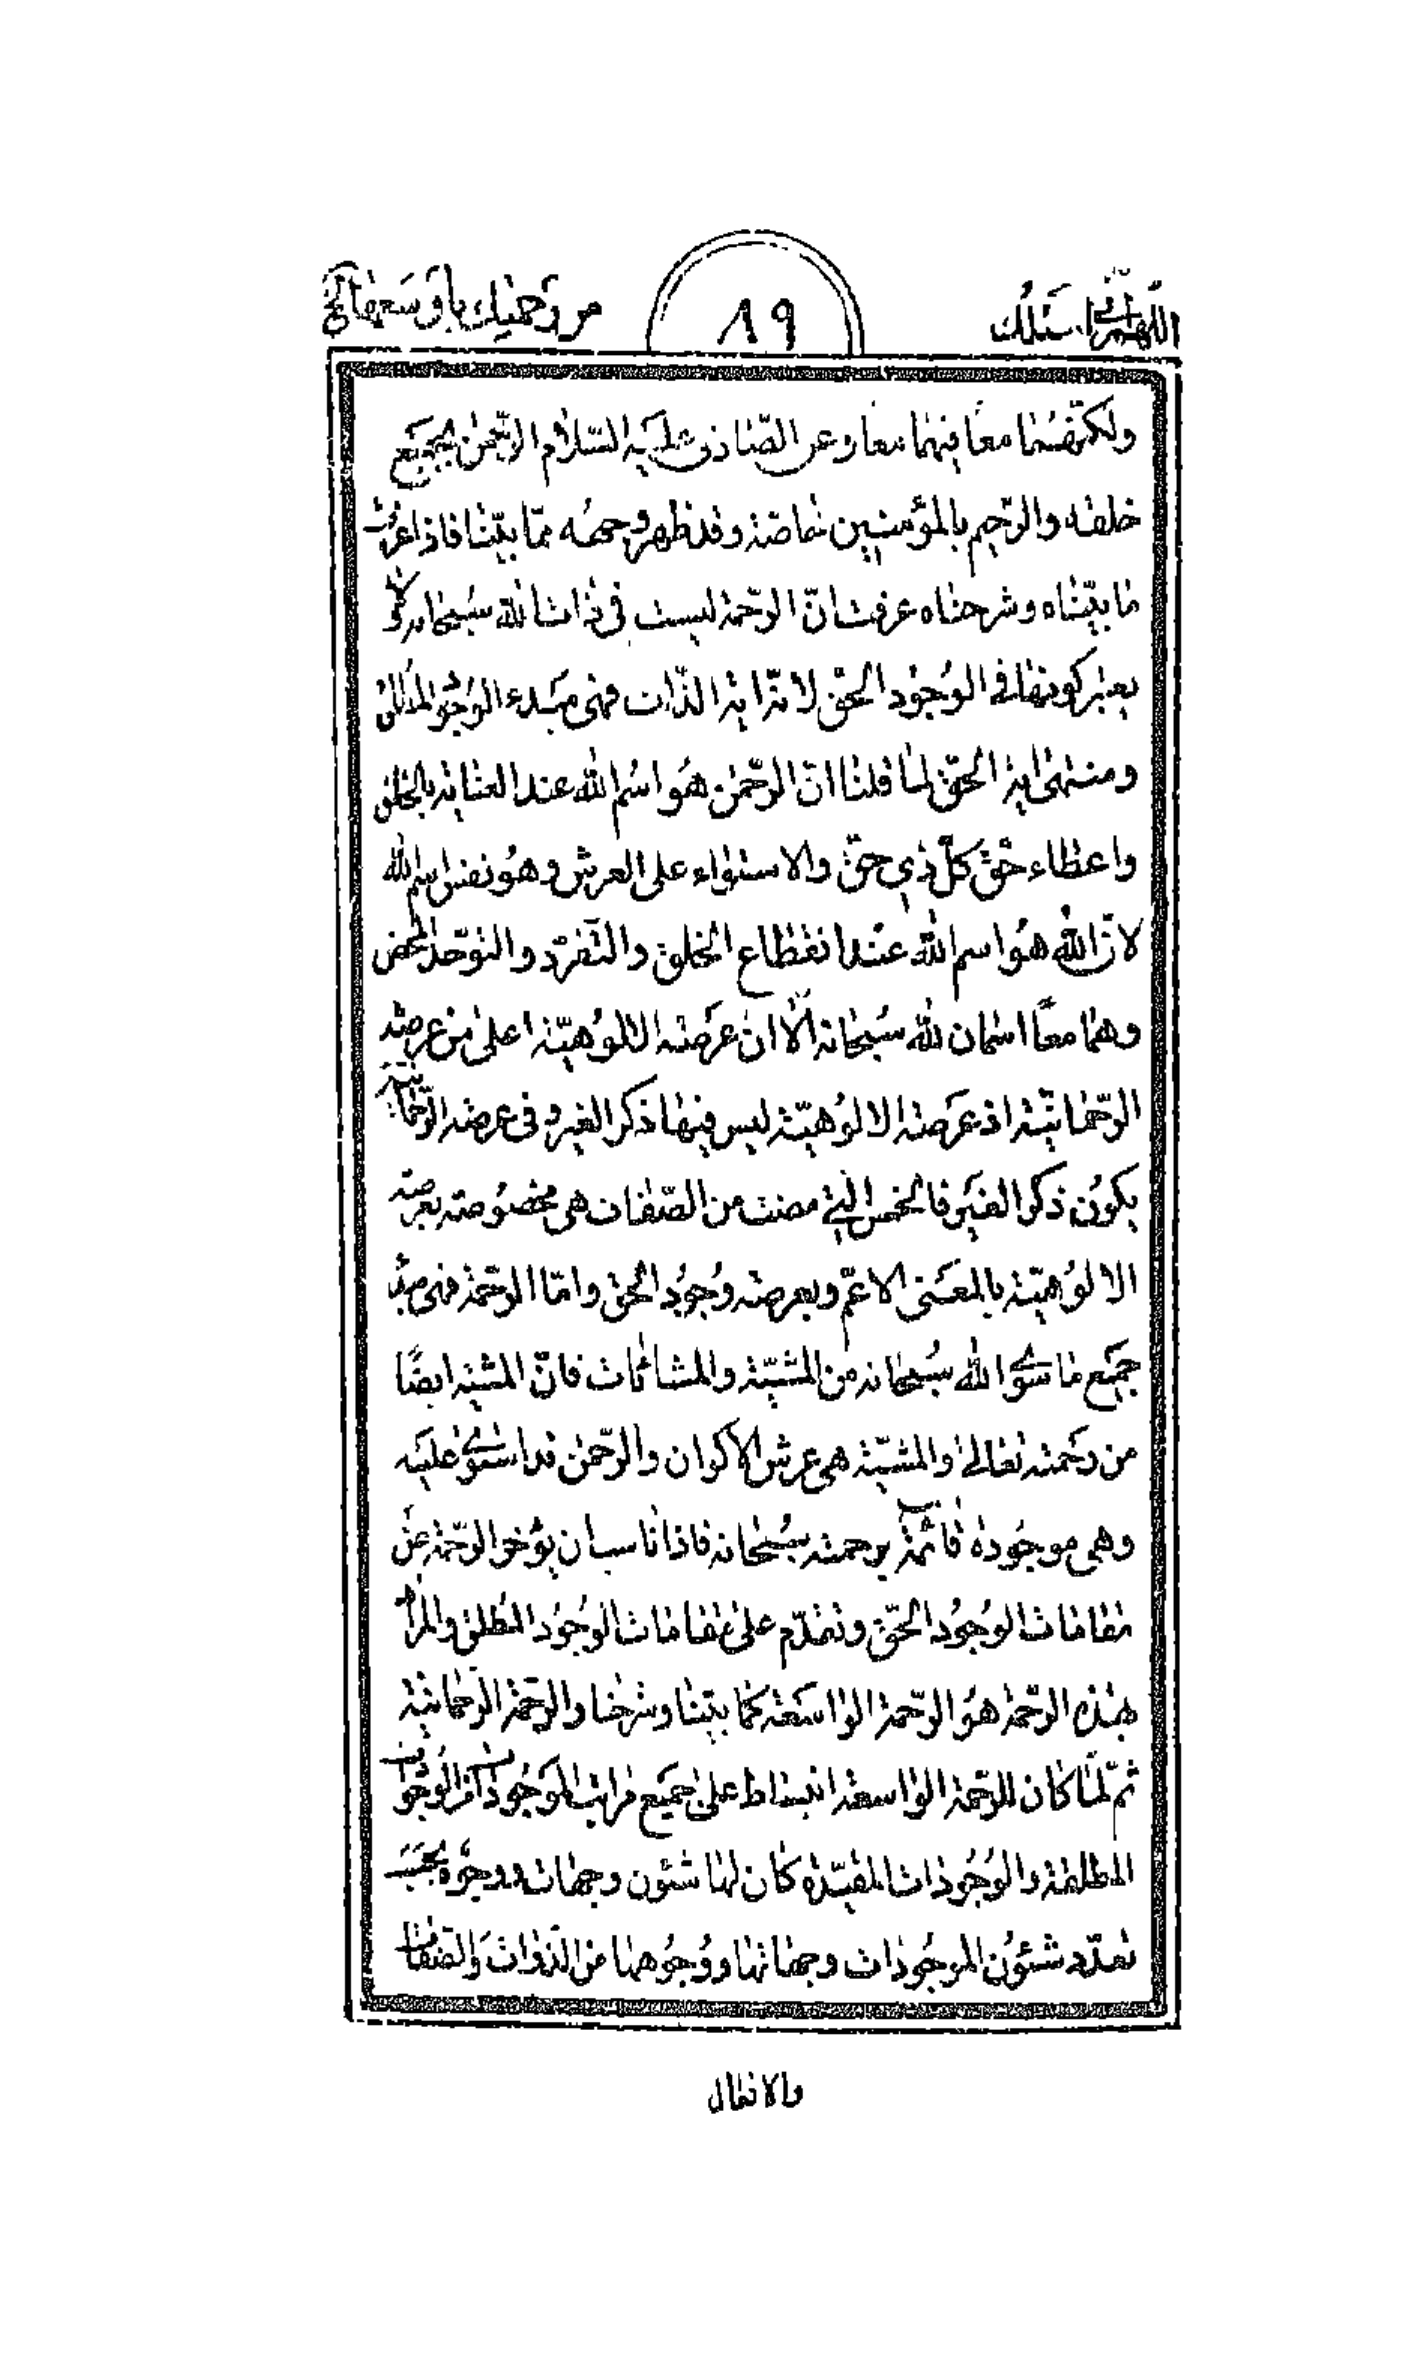 اللهم انی اسئلك
٨٩
من رحمتك باوسعها الخ
ولكنهما معا فیهما معا وعن الصادق علیه السلام الرحمن بجمیع
خلقه والرحیم بالمؤمنین خاصة وقد ظهر وجهه مما بینا فاذا عرفت
ما بیناه وشرحناه عرفت ان الرحمة لیست فی ذات الله سبحانه ولا
یعتبر كونها فی الوجود الحق لانه ایة الذات فهی مبدء الوجود المطلق
ومنتهی ایة الحق لما قلنا ان الرحمن هو اسم الله عند العنایة بالخلق
واعطاء حق كل ذی حق والاستواء علی العرش وهو نفس اسم الله
لان الله هو اسم الله عند انقطاع الخلق والتفرد والتوحد المحض
وهما معا اسمان لله سبحانه الا ان عرصة الالوهیة اعلی من عرصة
الرحمانیة اذ عرصة الالوهیة لیس فیها ذكر الغیر وفی عرصة الرحمانیة
یكون ذكر الغیر فالخمس التی مضت من الصفات هی مخصوصة بعرصة
الالوهیة بالمعنی الاعم وبعرصة وجود الحق واما الرحمة فهی مبدء
جمیع ما سوی الله سبحانه من المشیة والمشاءات فان المشیة ایضا
من رحمته تعالی والمشیة هی عرش الاكوان والرحمن قد استوی علیه
وهی موجودة قائمة برحمته سبحانه فاذا ناسب ان یؤخر الرحمة عن
مقامات الوجود الحق وتقدم علی مقامات الوجود المطلق والمراد
بهذه الرحمة هو الرحمة الواسعة كما بینا وشرحنا والرحمة الرحمانیة
ثم لما كان للرحمة الواسعة انبساط علی جمیع مراتب الموجودات من الوجودات
المطلقة والوجودات المقیدة كان لها شئون وجهات ووجوه بحسب
تعدد شئون الموجودات وجهاتها ووجوهها من الذوات والصفات
والافعال